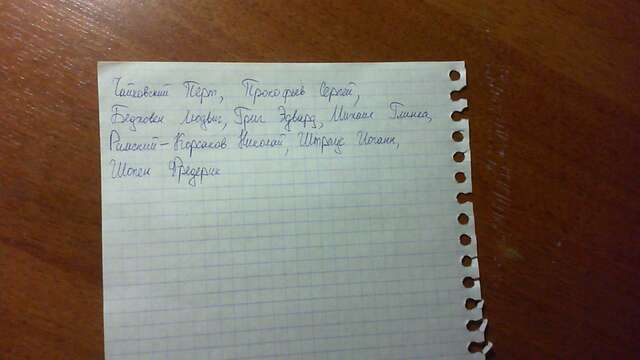 Чайковский Пётр, Прокофьев Сергей,
Бетховен Людвиг, Григ Эдвард, Михаил Глинка,
Римский-Корсаков Николай, Штраус Иоганн,
Шопен Фредерик